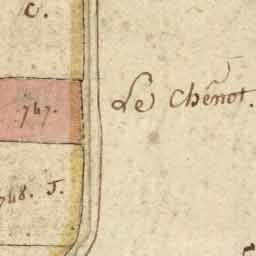 C.
747.
Le Chenot.
748. J.